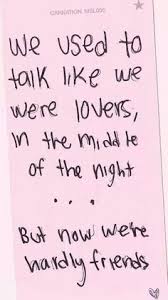 we used to
talk like we
were lovers,
in the middle
of the night
...
But now we're
hardly friends